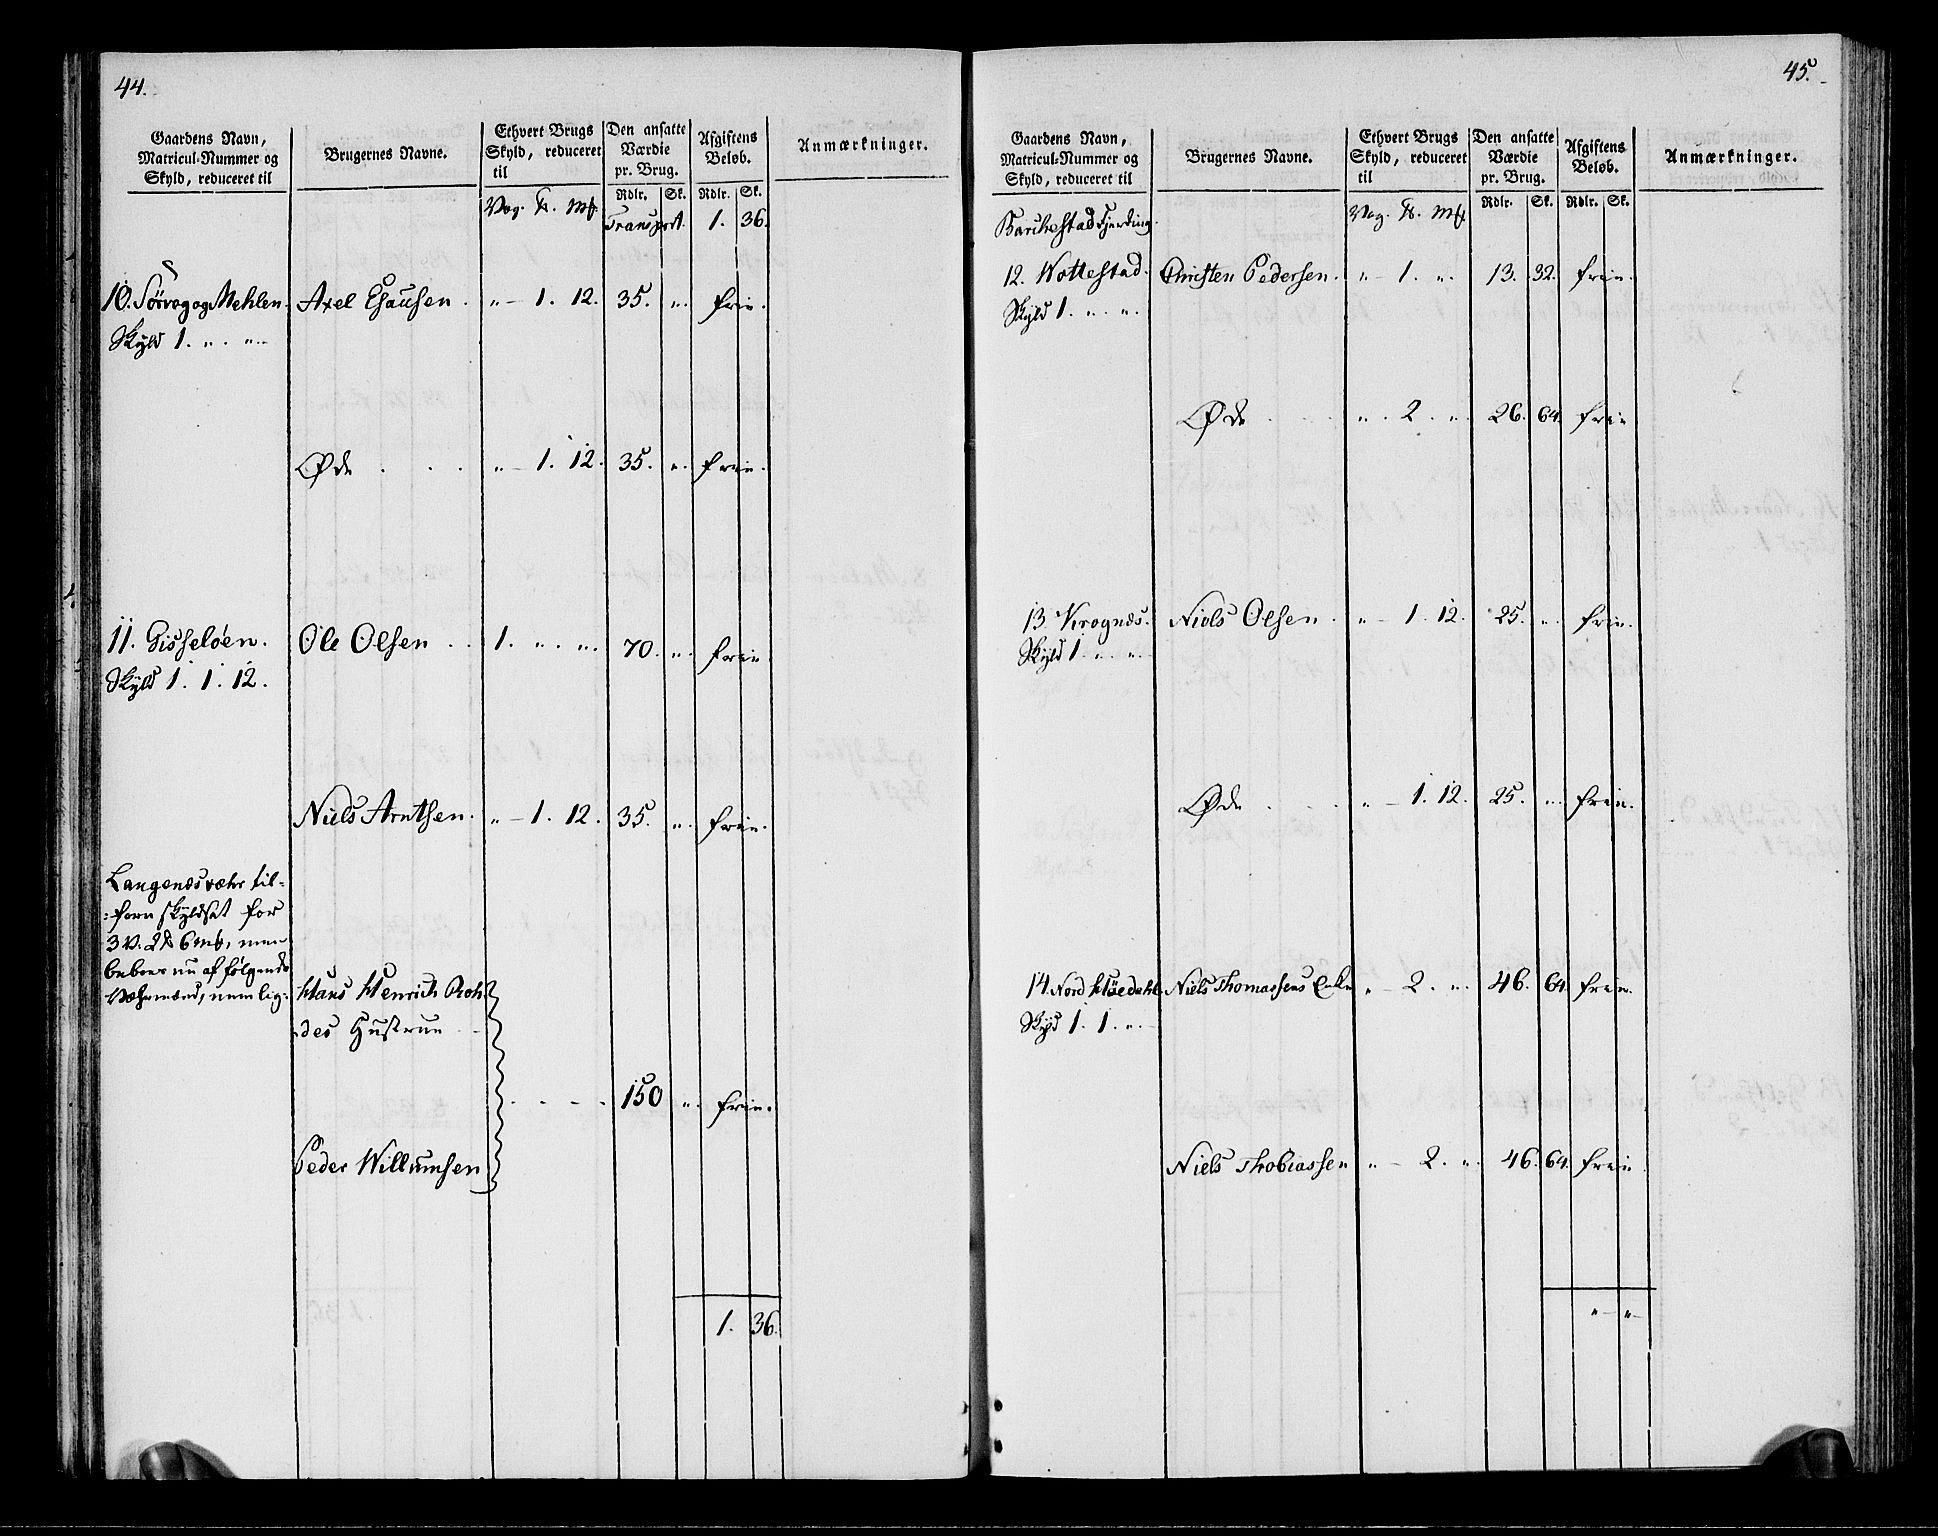 44.
Gaardens Navn, Matricul-Nummer og Skyld, reduceret til
Brugernes Navne.
Ethvert Brugs Skyld, reduceret til
Den ansatte Værdie pr. Brug.
Afgiftens Beløb.
Anmærkninger.
Rdlr. Sk. Rdlr. Sk.
Vog. ℔. Mk. Transport. 1. 36.
10. Sørvog og Mehlen. Axel Esausen. „ – 1. 12. 35. „. frie.
Skyld 1. „. „.
Øde . . . „ – 1. 12. 35. „. frie.
11. Gisseløen. Ole Olsen . . 1. „. „. 70. „. frie
Skyld 1. 1. 12.
Niels Arntsen. „ – 1. 12. 35. „. frie.
Langenæsvæhr til=
:forn skyldsat for
3 V. 2 ℔ 6 mk, men
beboes nu af følgende
Væhrmænd, nemlig: Hans Henrich Roh-
des Hustrue
. . . . 150 „. frie.
Peder Willumsen
1. 36.
45.
Gaardens Navn, Matricul-Nummer og Skyld, reduceret til
Brugernes Navne.
Ethvert Brugs Skyld, reduceret til
Den ansatte Værdie pr. Brug.
Afgiftens Beløb.
Anmærkninger.
Rdlr. Sk. Rdlr. Sk.
Barchestad Fjerding. Vog. ℔. Mk.
12. Wottestad. Christen Pedersen. „ – 1. „. 13. 32. frie.
Skyld 1. „. „.
Øde . . . „ . 2. „. 26. 64. frie
13. Krognæs. Niels Olsen. „ – 1. 12. 25. „. frie.
Skyld 1. „. „.
Øde . . . „ – 1. 12. 25. „. frie.
14. Nord Kløedahl. Niels Thomassens Enke „ – 2. „. 46. 64. frie.
Skyld 1. 1. „.
Niels Thobiassen „ – 2. „. 46. 64. frie
„ – „ –